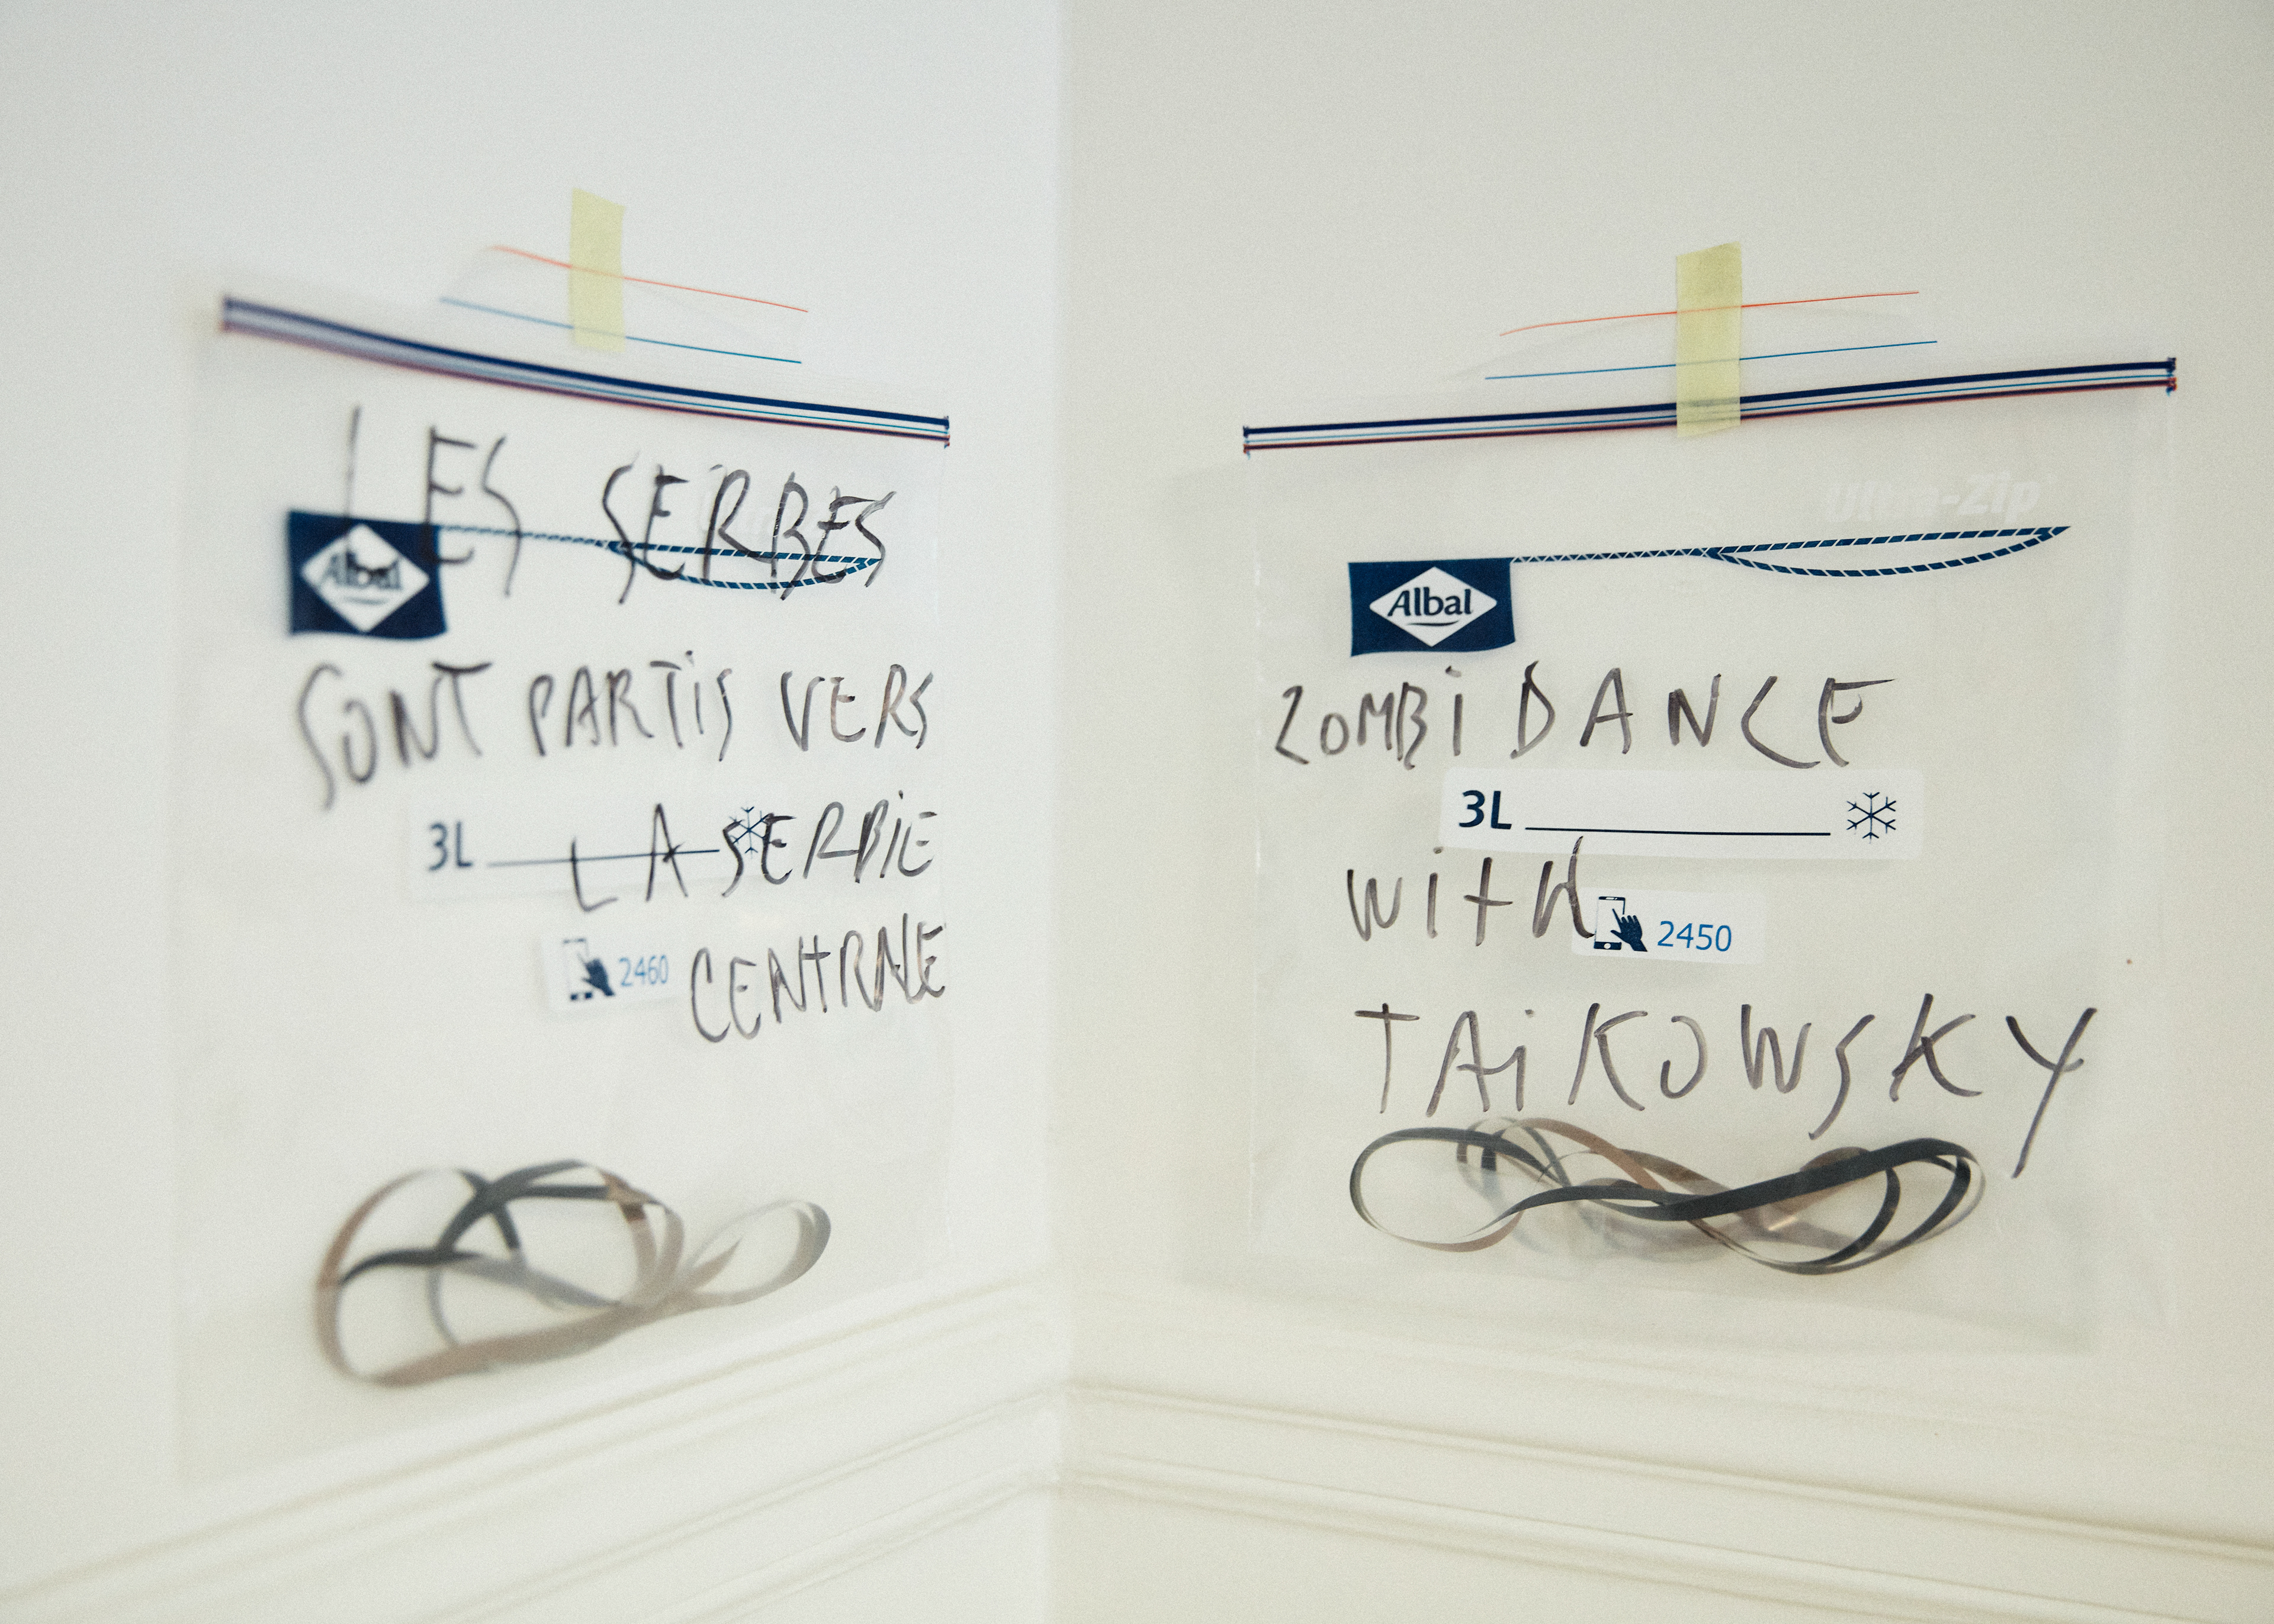 LES SERBES
Albal
SONT PARTiS VERS
3L LA SERBiE
2460 CENTRALE
Ultra-Zip
Albal
ZOMBi DANCE
3L
WitH 2450
TAiKOWSKY